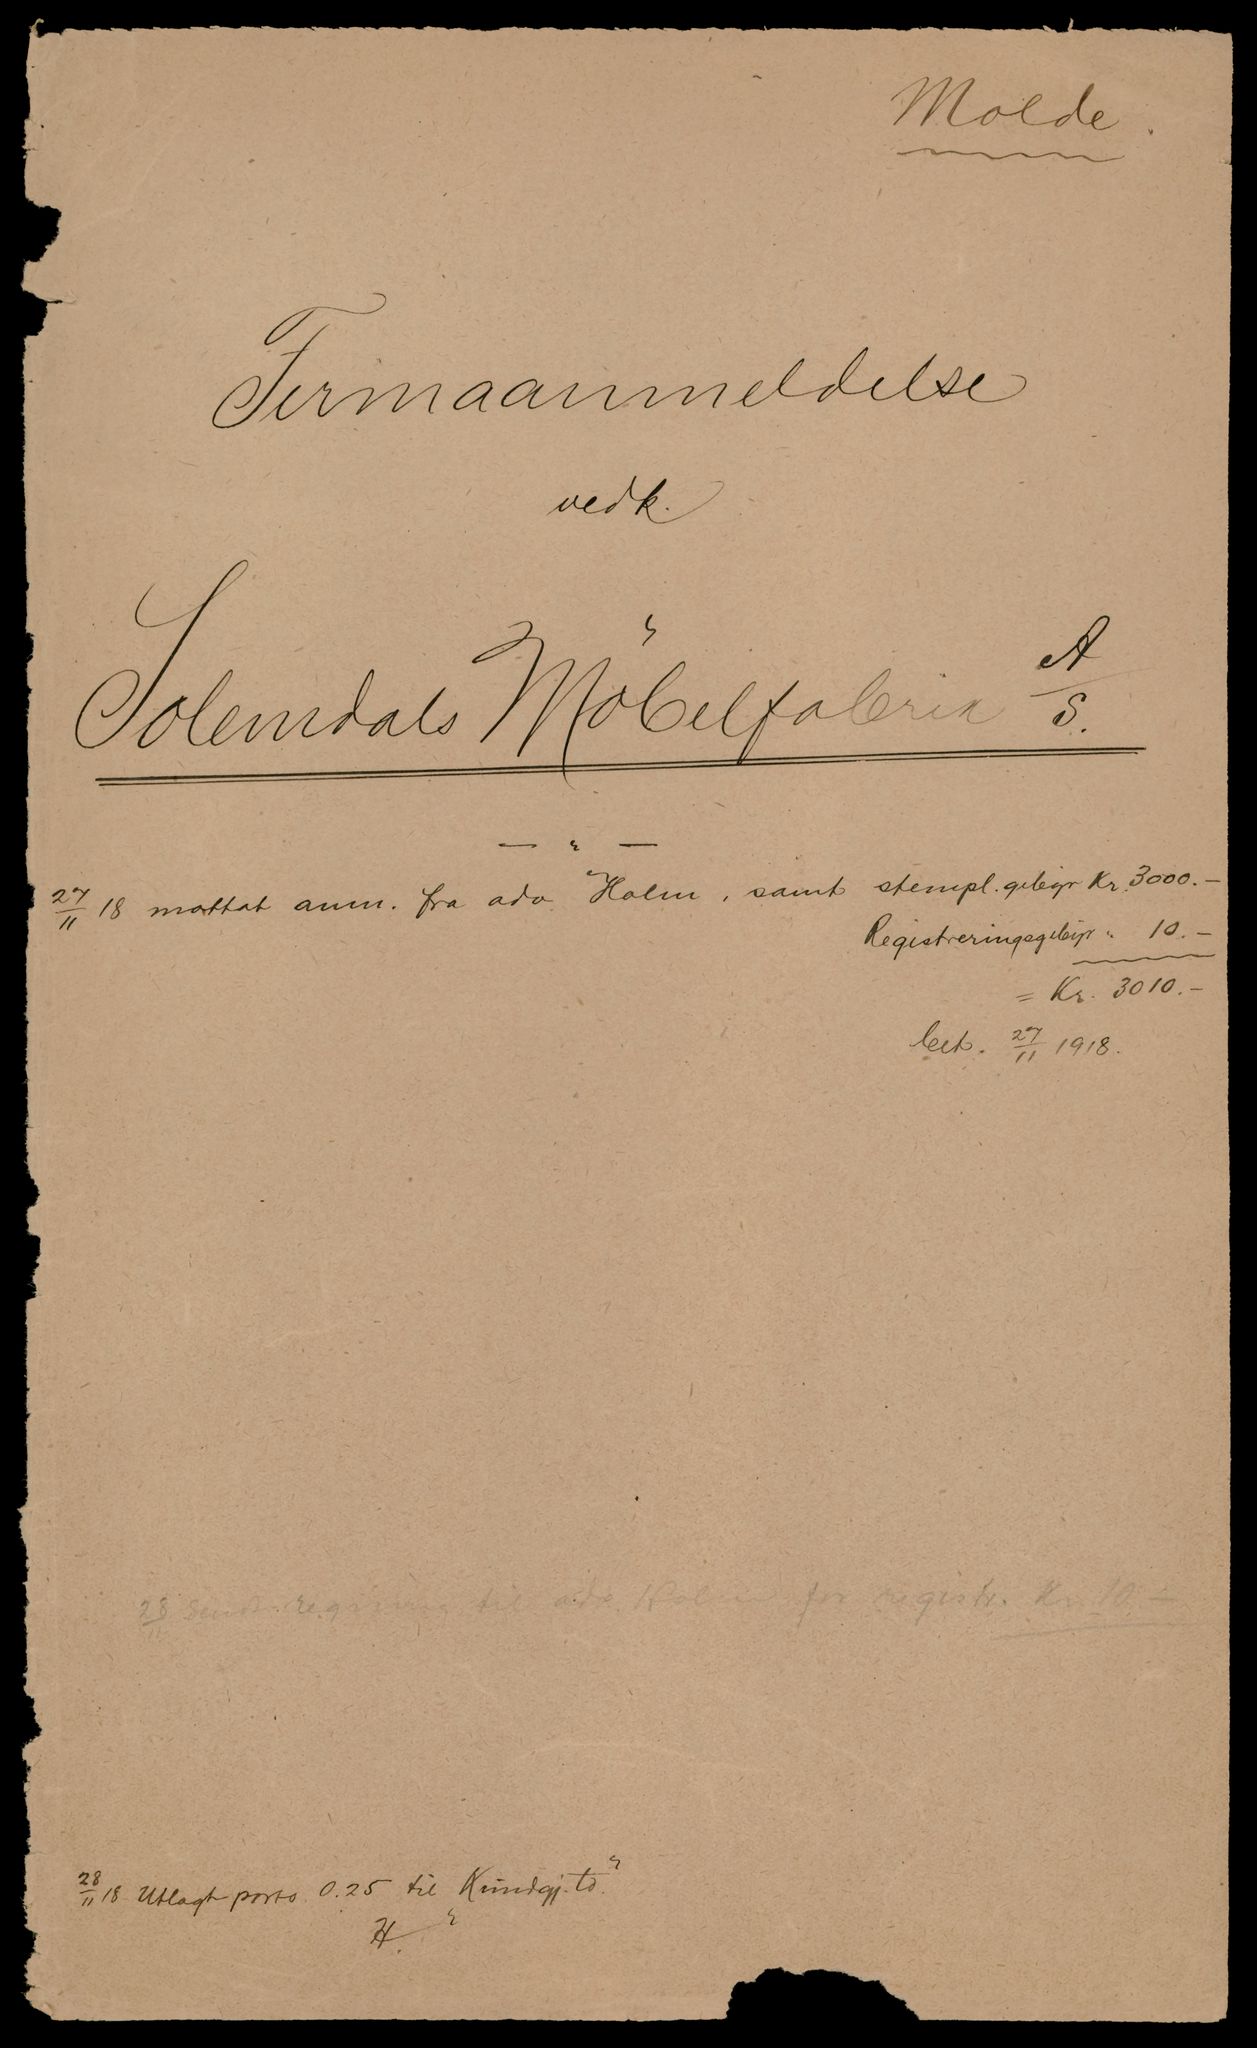 Molde.
Firmaanmeldelse
vedk.
Solemdals Möbelfabrik A/S.
— " —
27/11 18 mottat anm. fra adv. Holm, samt stempl. gebyr Kr. 3000.-
Registreringsgebyr " 10.-
= Kr. 3010.-
bet. 27/11 1918.
28/11 Sendt regning til adv. Holm for registr. Kr. 10.-
28/11 18 Utlagt porto 0.25 til Kundgj. td.
H.